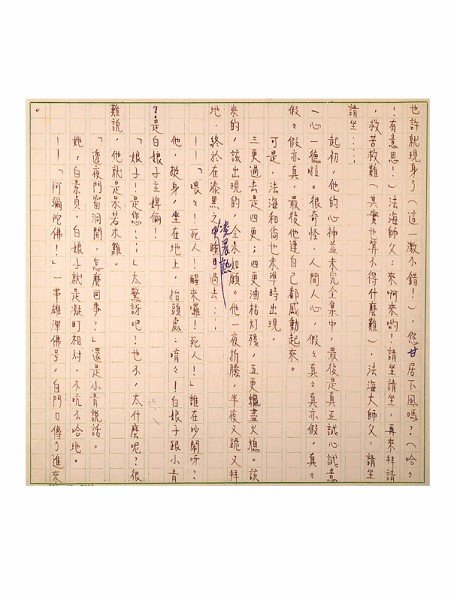 也許就現身了(這一激不錯!)。您甘居下風嗎?(哈々
!有意思!)法海師父:來啊來喲!請坐請坐,再來拜請
,救苦救難(其實也算不得什麼難),法海大師父,請坐
請坐……
起初,他的心神並未完全集中,最後是真正誠心誠意
一心一德啦。很奇怪,人間人心,假々真々真亦假,真々
假々假亦真,最後他連自己都感動起來。
可是,法海和尚也未準時出現。
三更過去是四更;四更油枯灯殘,五更蠟盡又熄。該
來的,該出現的,全未如願。他一夜折騰,半夜又跪又拜
地,終於在漆黑之中
凌晨
過去……
——「喂々!死人!醒來囉!死人!」誰在吵鬧呀?
他,挺身,坐在地上,抬頭處:唷々!白娘子跟小青
?是白娘子主婢倆!
「娘子!是您……」太驚訝吧!也不,太什麼呢?很
難說,他就是呆若木雞。
「透夜門窗洞開,怎麼回事?」還是小青說話。
她,白素貞,白娘子就是凝盯相对,不吭不哈地。
——「阿彌陀佛!」一串雄渾佛号,自門口傳了進來
。